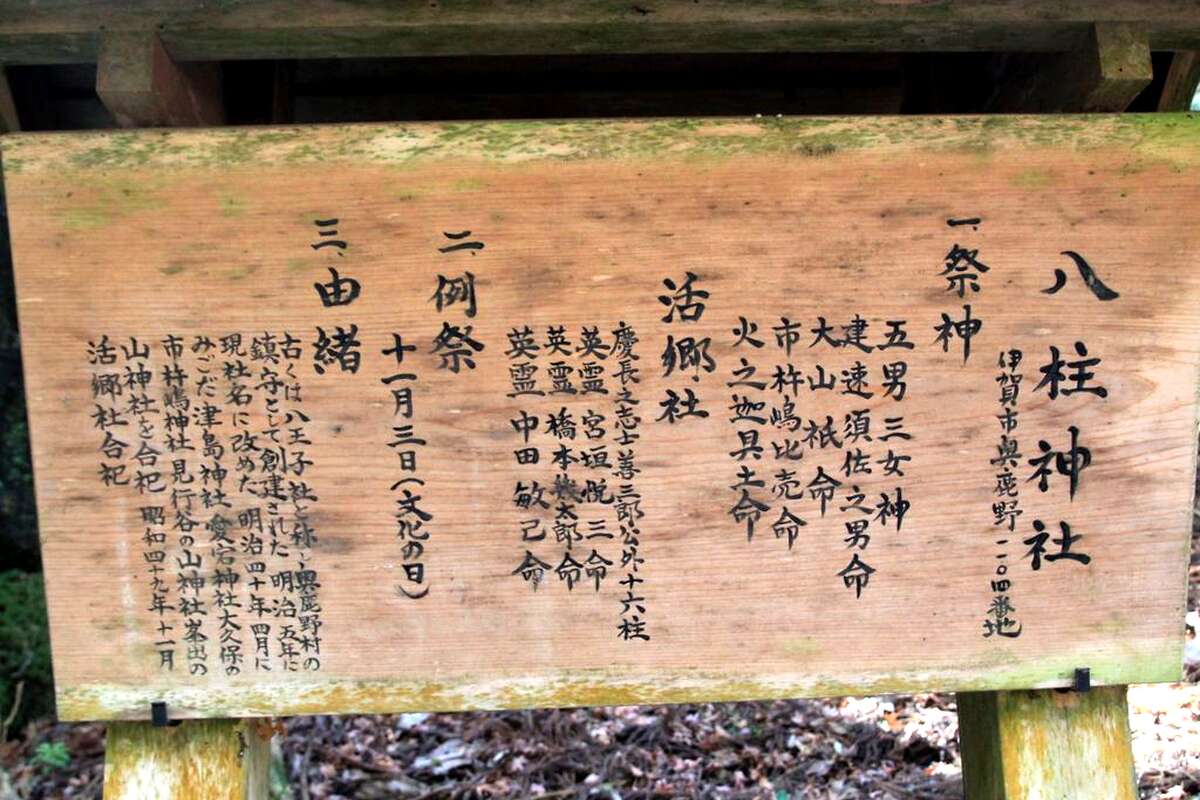 八柱神社
伊賀市奥鹿野一一〇四番地
一、祭神
五男三女神
建速須佐之男命
大山祇命
市杵嶋比売命
火之迦具土命
活郷社
慶長之志士善三郎公外十六柱
英霊 宮垣悦三命
英霊 橋本 太郎命
英霊 中田敏己命
二、例祭
十一月三日(文化の日)
三、由緒
古くは八王子社と称し奥鹿野村の
鎮守として創建された 明治五年に
現社名に改めた 明治四十年四月に
みごだ津島神社 愛宕神社大久保の
市杵嶋神社 見行谷の山神社峯出の
山神社を合祀 昭和四十九年十一月
活郷社合祀